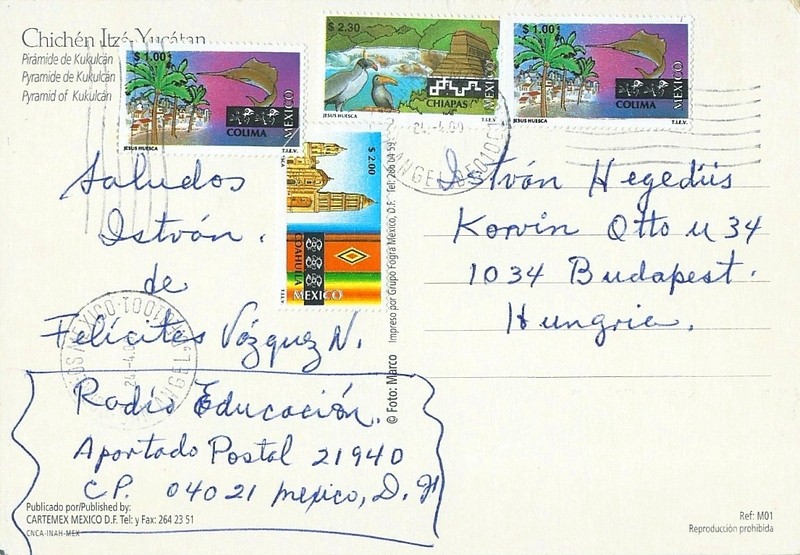 Chichén Itzá-Yucátan
Pirámide de Kukulcán
Pyramide de Kukulcán
Pyramid of Kukulcán
$ 1.00
COLIMA
MEXICO
JESUS HUESCA
T.I.E.V.
$ 2.30
CHIAPAS
MEXICO
JESUS HUESCA
T.I.E.V.
$ 1.00
COLIMA
MEXICO
JESUS HUESCA
T.I.E.V.
$ 2.00
COAHUILA
MEXICO
T.I.E.V.
Saludos
István.
de
Felícites Vázquez N.
Radio Educación.
Apartado Postal 21940
C.P. 04021 Mexico, D.F.
István Hegedüs
Korvin Otto u 34
1034 Budapest.
Hungria.
© Foto: Marco Impreso por Grupo Fogra Mexico, D.F. Tel: 286 04 59
Publicado por/Published by:
CARTEMEX MEXICO D.F. Tel: y Fax: 264 23 51
CNCA-INAH-MEX
Ref: M01
Reproducción prohibida